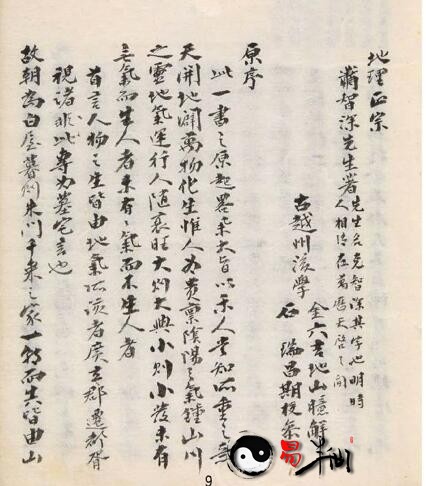 地理正宗
蕭智深先生著 先生名克智深其字也明時
人相傳在萬歷天啓之間
古越州後學
金六吉地山臆解
石瑞昌期校參
原序
此一書之原起畧矣大旨以示人當知所重之無
天開地闢萬物化生惟人为貴稟陰陽之氣鍾山川
之靈地氣運行人随衰旺大則大興小則小發未有
無氣而生人者未有氣而不生人者
首言人物之生皆由地氣不該者廣言郡遷都胥
視諸此非專为墓宅言也
故朝为白屋暮则朱门千乘之家一敗而生皆由山
易
9